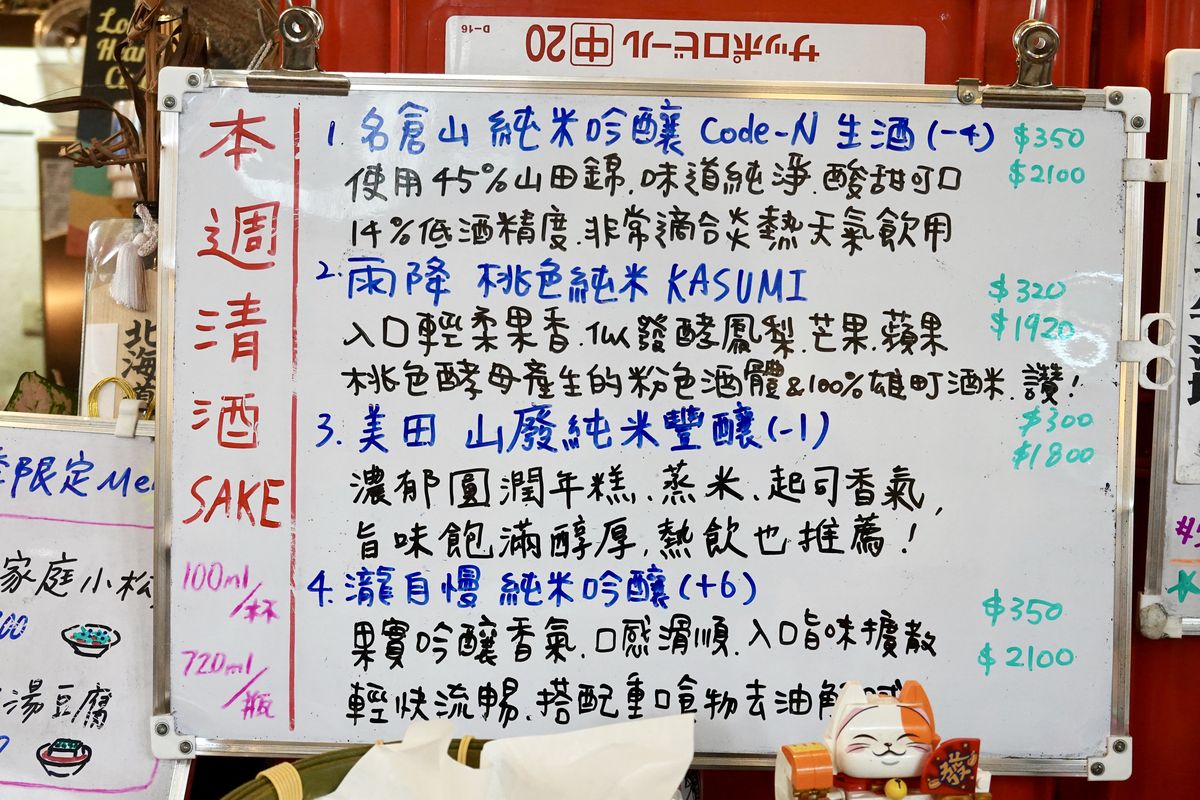 Lo
Hea
C
D-16
サッポロビール 中 20
本週清酒
SAKE
100ml/杯
720ml/瓶
1. 名倉山 純米吟釀 Code-N 生酒(-4) $350
使用45%山田錦.味道純淨.酸甜可口 $2100
14%低酒精度.非常適合炎熱天氣飲用
2. 雨降 桃色純米 KASUMI $320
入口輕柔果香.似發酵鳳梨.芒果.蘋果 $1920
桃色酵母產生的粉色酒體&100%雄町酒米.讚!
3. 美田 山廢純米豐釀(-1) $300
$1800
濃郁圓潤年糕.蒸米.起司香氣,
旨味飽滿醇厚.熱飲也推薦!
4. 瀧自慢 純米吟釀(+6) $350
果實吟釀香氣.口感滑順.入口旨味擴散 $2100
輕快流暢.搭配重口食物去油解
北海道
限定Me
家庭小松
00
湯豆腐
發